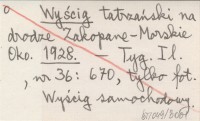 Wyścig tatrzański na
drodze Zakopane-Morskie
Oko. 1928. — Tyg. Il.
, nr 36: 670, tylko fot.
Wyścig samochodowy.